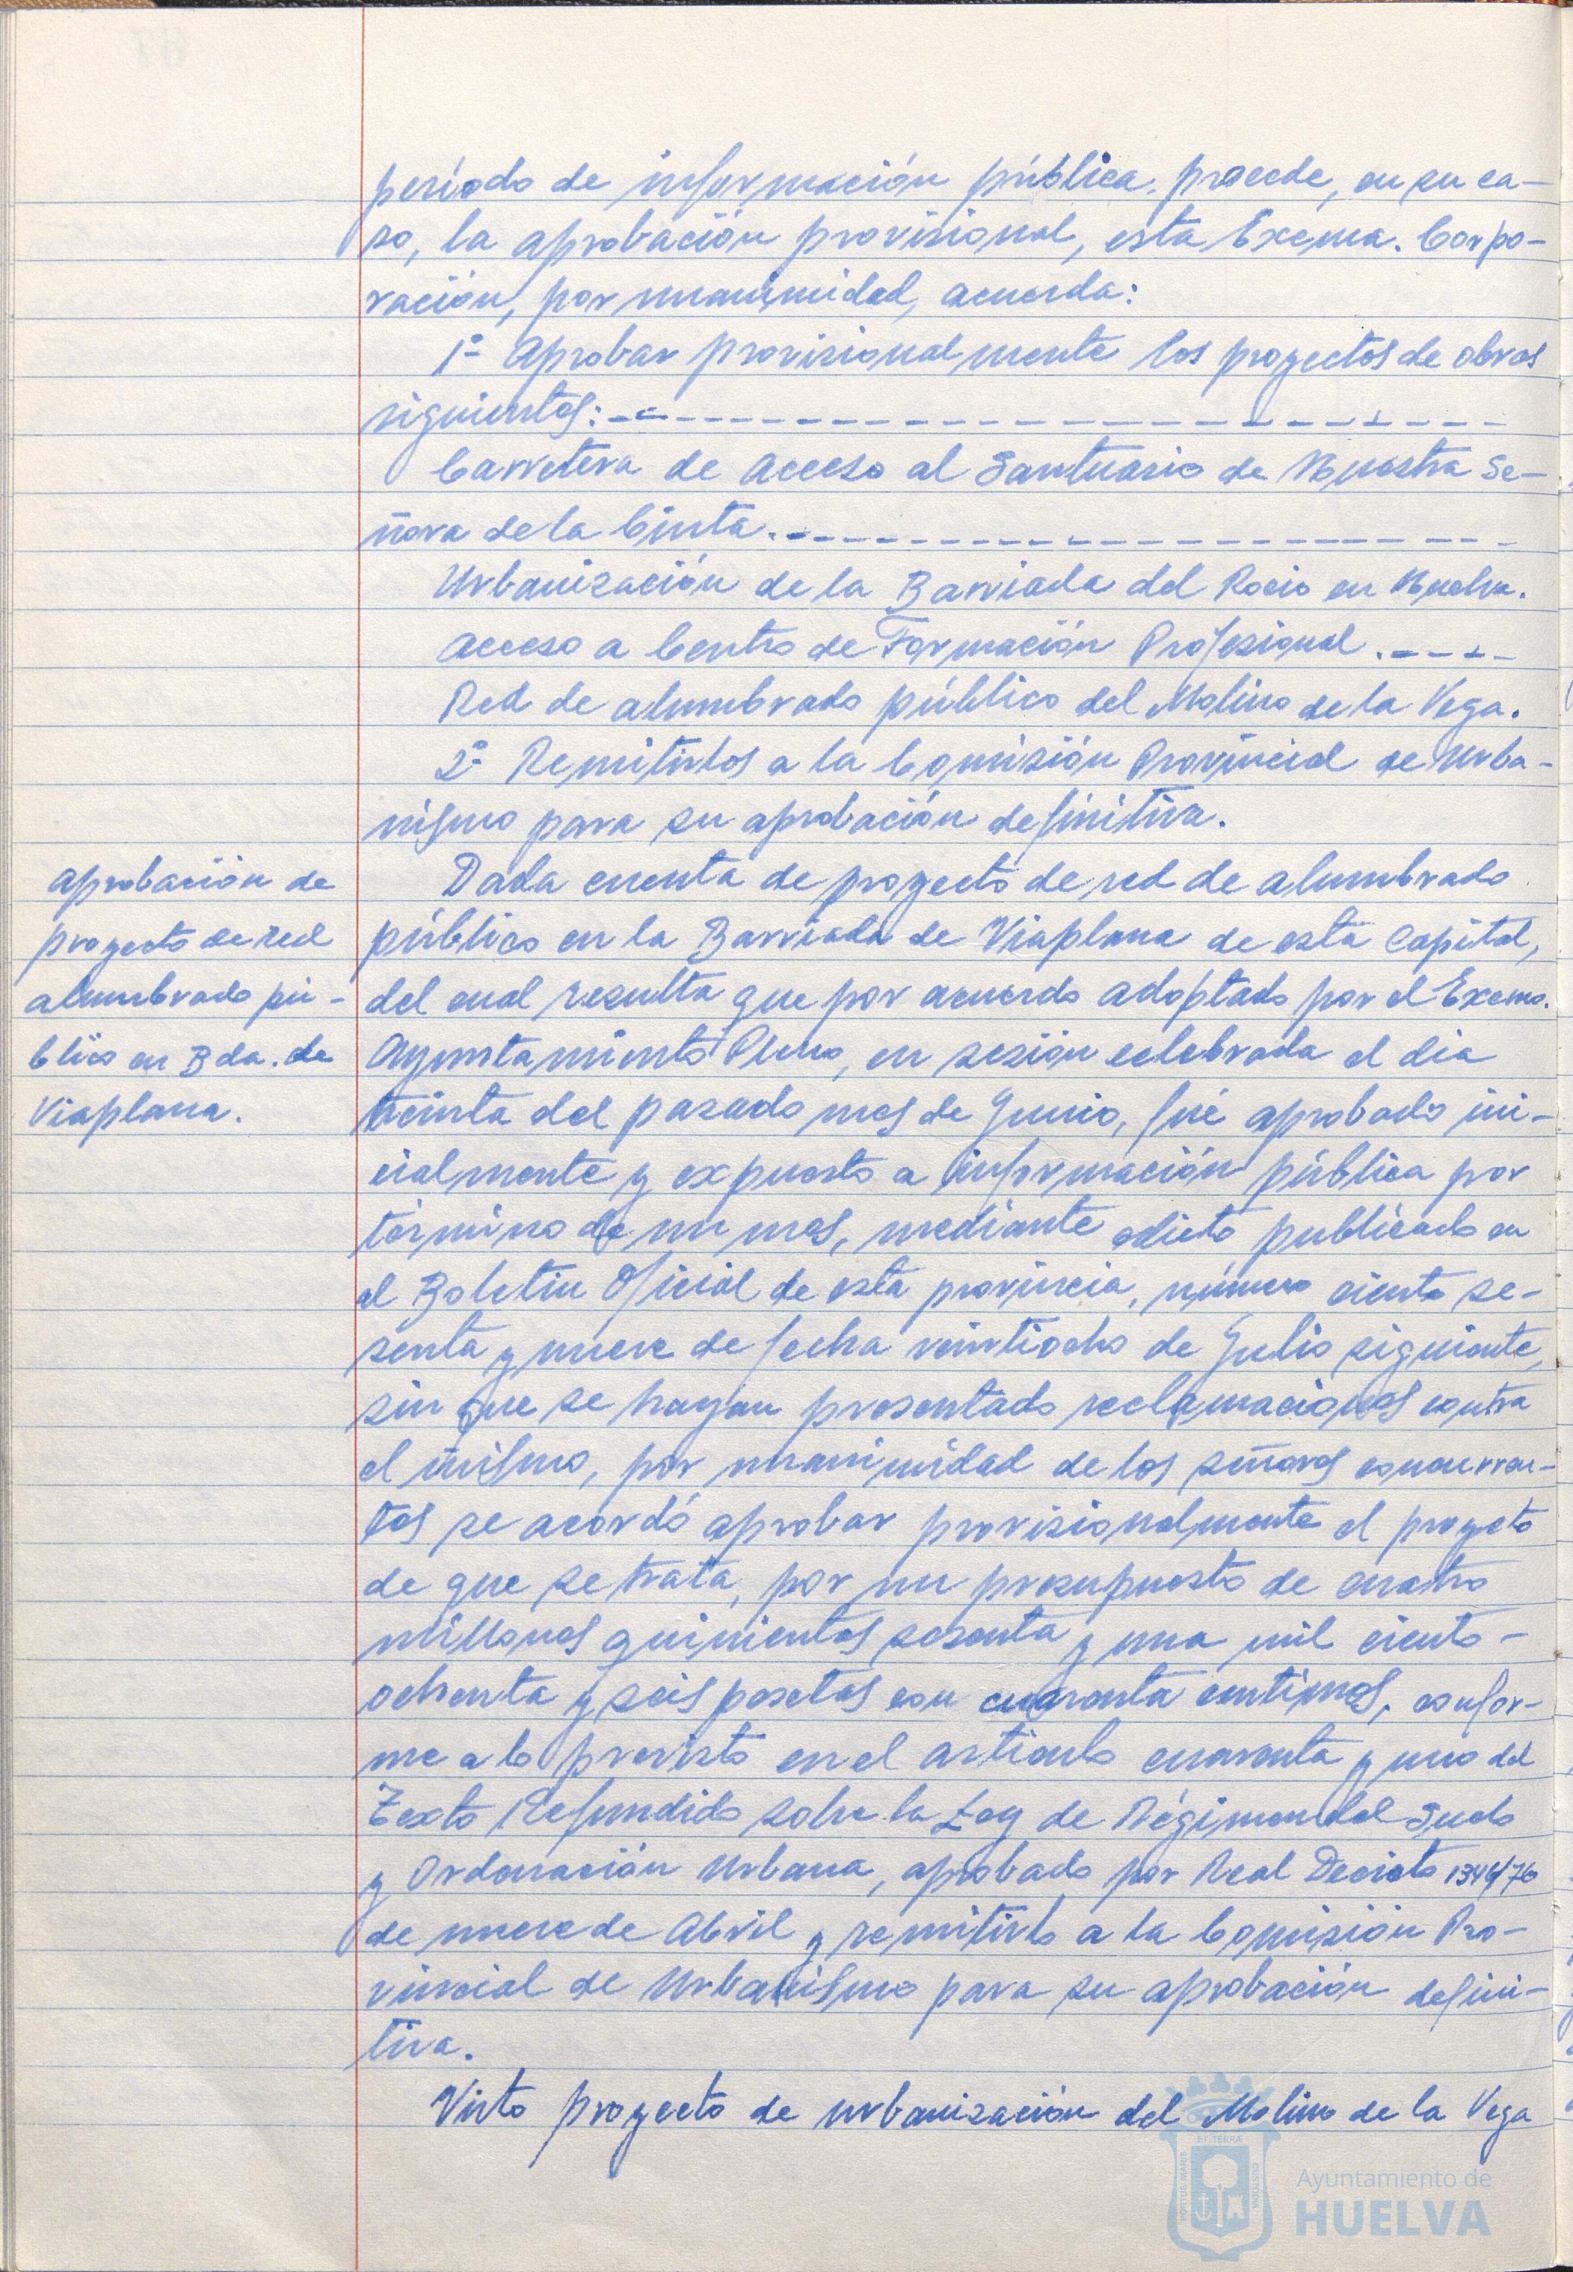 período de información pública, procede, en su ca-
so, la aprobación provisional, esta Excma. Corpo-
ración, por unanimidad, acuerda:
1º Aprobar provisionalmente los proyectos de obras
siguientes:
Carretera de Acceso al Santuario de Nuestra Se-
ñora de la Cinta.
Urbanización de la Barriada del Rocio en Huelva.
Acceso a Centro de Formación Profesional.
Red de alumbrado público del Molino de la Vega.
2º Remitirlos a la Comisión Provincial de Urba-
nismo para su aprobación definitiva.
Aprobación de
proyecto de red
alumbrado pú-
blico en Bda. de
Viaplana.
Dada cuenta de proyecto de red de alumbrado
público en la Barriada de Viaplana de esta Capital,
del cual resulta que por acuerdo adoptado por el Excmo.
Ayuntamiento Pleno, en sesión celebrada el dia
treinta del pasado mes de Junio, fué aprobado ini-
cialmente y expuesto a información pública por
término de un mes, mediante edicto publicado en
el Boletin Oficial de esta provincia, número ciento se-
senta y nueve de fecha veintiocho de Julio siguiente,
sin que se hayan presentado reclamaciones contra
el mismo, por unanimidad de los señores concurren-
tes se acordó aprobar provisionalmente el proyecto
de que se trata, por un presupuesto de cuatro
millones quinientas sesenta y una mil ciento-
ochenta y seis pesetas con cuarenta centimos, confor-
me a lo previsto en el articulo cuarenta y uno del
Texto Refundido sobre la Ley de Régimen del Suelo
y Ordenación Urbana, aprobado por Real Decreto 1346/76
de nueve de Abril y remitirlo a la Comisión Pro-
vincial de Urbanismo para su aprobación defini-
tiva.
Visto proyecto de urbanización del Molino de la Vega
PORTUS MARIS
ET TERRA
CUSTODIA
Ayuntamiento de
HUELVA